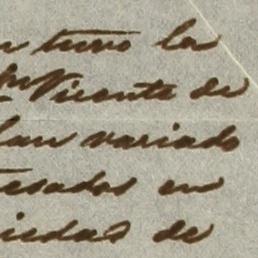 n tuvo la
Sn Vicente de
lan variado
tesados en
iedas de